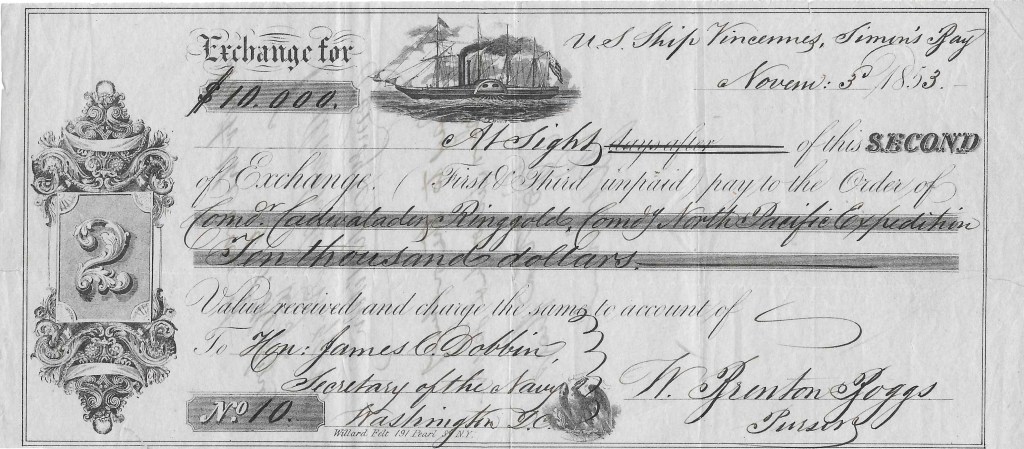 Exchange for
$10.000.
U.S. Ship Vincennes, Simon's Bay
Novem: 3d 1853.
At Sight days after of this SECOND
of Exchange. (First & Third unpaid) pay to the Order of
Comdr Cadwalader Ringgold, Comdg North Pacific Expedition
Ten thousand dollars.
Value received and charge the same to account of
To Hon: James C. Dobbin,
Secretary of the Navy
Washington D.C.
W. Brenton Boggs
Purser
2
No 10.
Willard Felt 191 Pearl St N.Y.